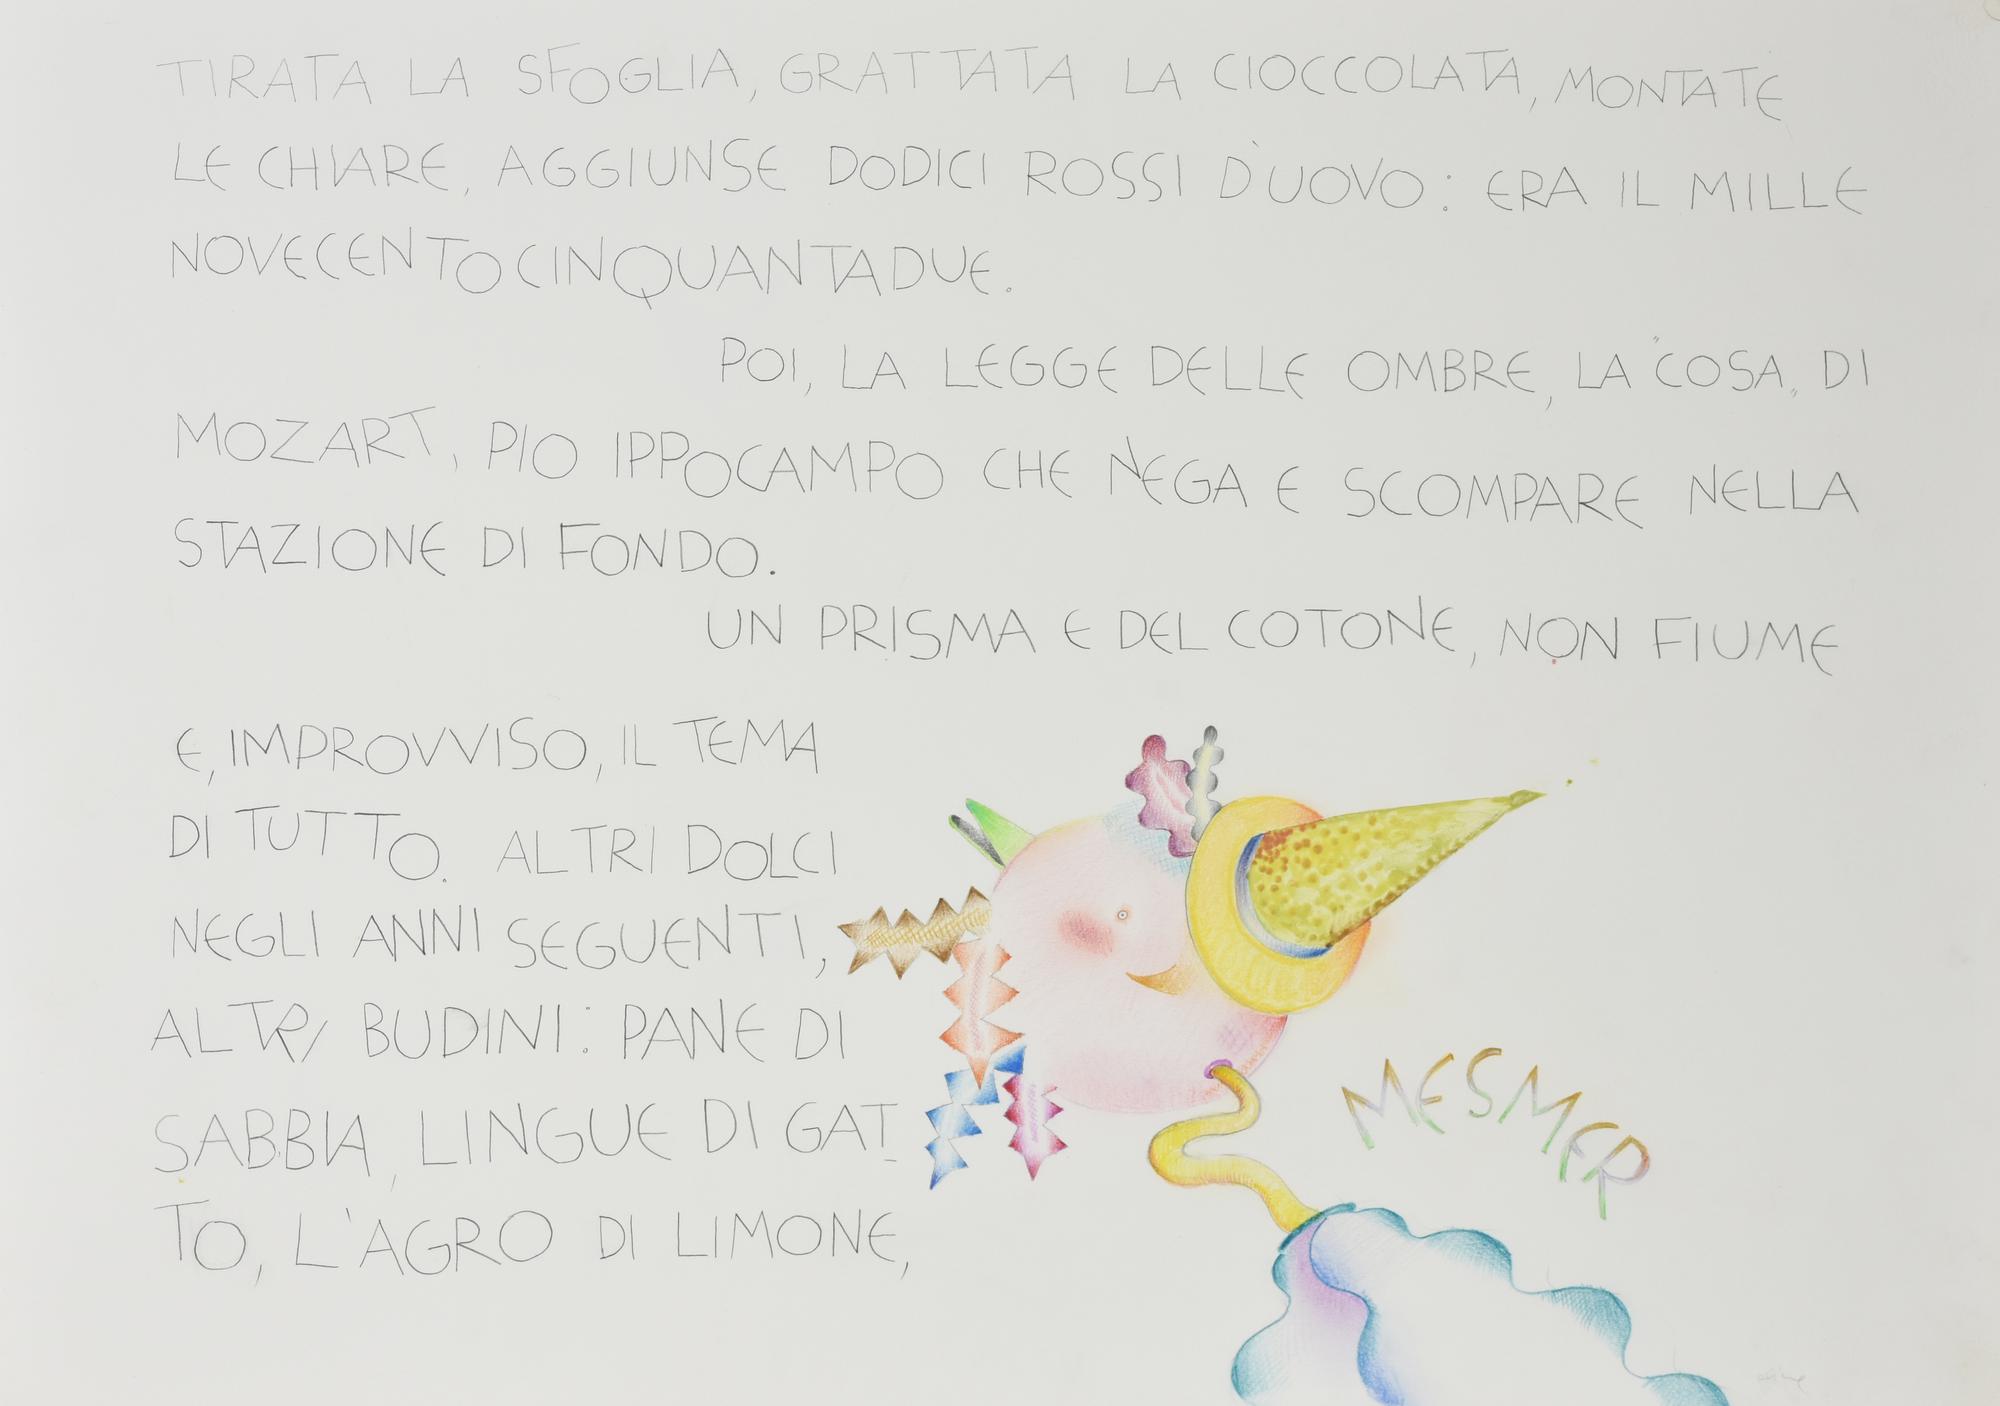 TIRATA LA SFOGLIA, GRATTATA LA CIOCCOLATA, MONTATE
LE CHIARE, AGGIUNSE DODICI ROSSI D'UOVO: ERA IL MILLE
NOVECENTOCINQUANTADUE.
POI, LA LEGGE DELLE OMBRE, LA "COSA" DI
MOZART, PIO IPPOCAMPO CHE NEGA E SCOMPARE NELLA
STAZIONE DI FONDO.
UN PRISMA E DEL COTONE, NON FIUME
E, IMPROVVISO, IL TEMA
DI TUTTO. ALTRI DOLCI
NEGLI ANNI SEGUENTI,
ALTRI BUDINI: PANE DI
SABBIA, LINGUE DI GAT
TO, L'AGRO DI LIMONE,
MESMER